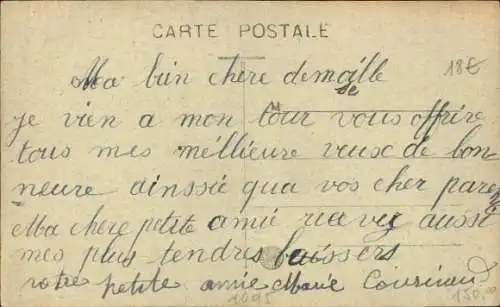 CARTE POSTALE
18€
Ma bien chere demoiselle
M
je vien a mon tour vous offrire
tous mes méllieure veux de bon-
neure ainssie qua vos cher paren
Ma chere petite amie aussi
mes plus tendres baissers
votre petite amie Marie
1095
150